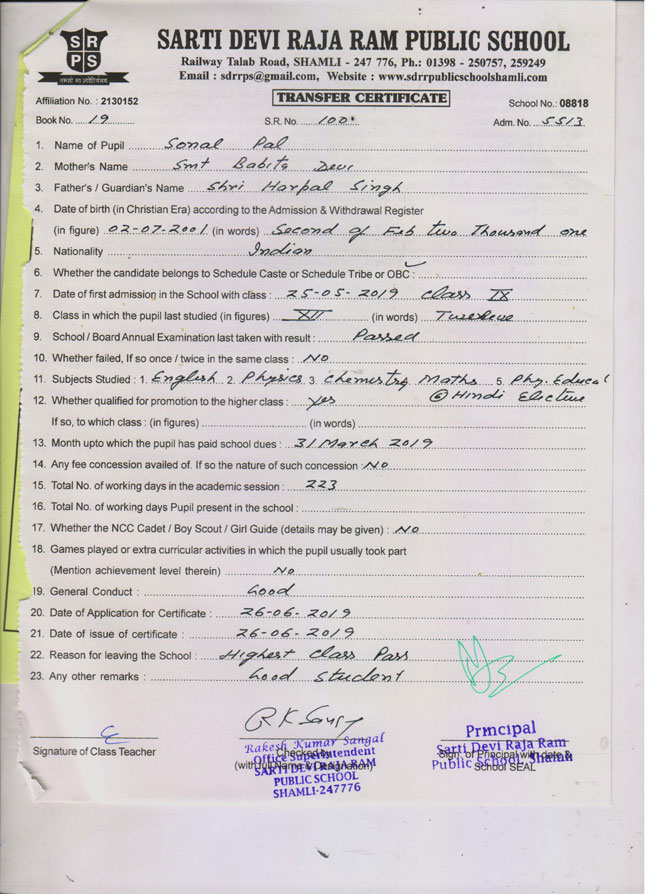 SRPS
तमसो मा ज्योतिर्गमय
SARTI DEVI RAJA RAM PUBLIC SCHOOL
Railway Talab Road, SHAMLI - 247 776, Ph.: 01398 - 250757, 259249
Email : sdrrps@gmail.com, Website : www.sdrrpublicschoolshamli.com
Affiliation No. : 2130152 TRANSFER CERTIFICATE School No.: 08818
Book No. 19 S.R. No. 100 Adm. No. 5513
1. Name of Pupil Sonal Pal
2. Mother's Name Smt Babita Devi
3. Father's / Guardian's Name Shri Harpal Singh
4. Date of birth (in Christian Era) according to the Admission & Withdrawal Register
(in figure) 02-07-2001 (in words) Second of Feb two Thousand one
5. Nationality Indian
6. Whether the candidate belongs to Schedule Caste or Schedule Tribe or OBC : ✓
7. Date of first admission in the School with class : 25-05-2019 class IX
8. Class in which the pupil last studied (in figures) XII (in words) Twelve
9. School / Board Annual Examination last taken with result : Passed
10. Whether failed, If so once / twice in the same class : NO
11. Subjects Studied : 1. English 2. Physics 3. Chemistry Maths 5. Phy. Educat
12. Whether qualified for promotion to the higher class : yes @ Hindi Elective
If so, to which class : (in figures) (in words)
13. Month upto which the pupil has paid school dues : 31 March 2019
14. Any fee concession availed of. If so the nature of such concession : NO
15. Total No. of working days in the academic session : 223
16. Total No. of working days Pupil present in the school :
17. Whether the NCC Cadet / Boy Scout / Girl Guide (details may be given) : NO
18. Games played or extra curricular activities in which the pupil usually took part
(Mention achievement level therein) NO
19. General Conduct : Good
20. Date of Application for Certificate : 26-06-2019
21. Date of issue of certificate : 26-06-2019
22. Reason for leaving the School : Highest class Pass
23. Any other remarks : Good student
Signature of Class Teacher
Rakesh Kumar Sangal
Checked by
Office Superintendent
(with full Name & Designation)
SARTI DEVI RAJA RAM
PUBLIC SCHOOL
SHAMLI-247776
Principal
Sarti Devi Raja Ram
Sign. of Principal with date &
Public School, Shamli
School SEAL